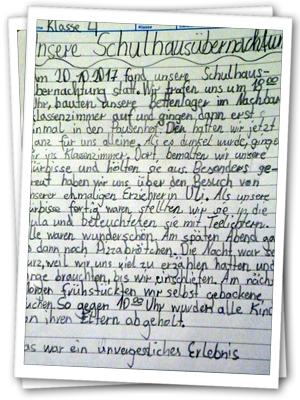 Klasse 4
Unsere Schulhausübernachtung
Am 20.10.2017 fand unsere Schulhaus-
übernachtung statt. Wir trafen uns um 18 00
Uhr, bauten unsere Bettenlager im Nachbar
klassenzimmer auf und gingen dann erst
einmal in den Pausenhof. Den hatten wir jetzt
ganz für uns alleine. Als es dunkel wurde, ginge
wir ins Klassenzimmer. Dort bemalten wir unsere
Kürbisse und höhlten sie aus. Besonders ge-
freut haben wir uns über den Besuch von
unserer ehemaligen Erzieherin Uli. Als unsere
Kürbisse fertig waren, stellten wir sie in die
Aula und beleuchteten sie mit Teelichtern.
Alle waren wunderschön. Am späten Abend ga
es dann noch Pizzabrötchen. Die Nacht war se
kurz, weil wir uns viel zu erzählen hatten und
lange brauchten, bis wir einschliefen. Am nächs
Morgen frühstückten wir selbst gebackene
Kuchen. So gegen 10 00 Uhr wurden alle Kind
von ihren Eltern abgeholt.
Das war ein unvergessliches Erlebnis